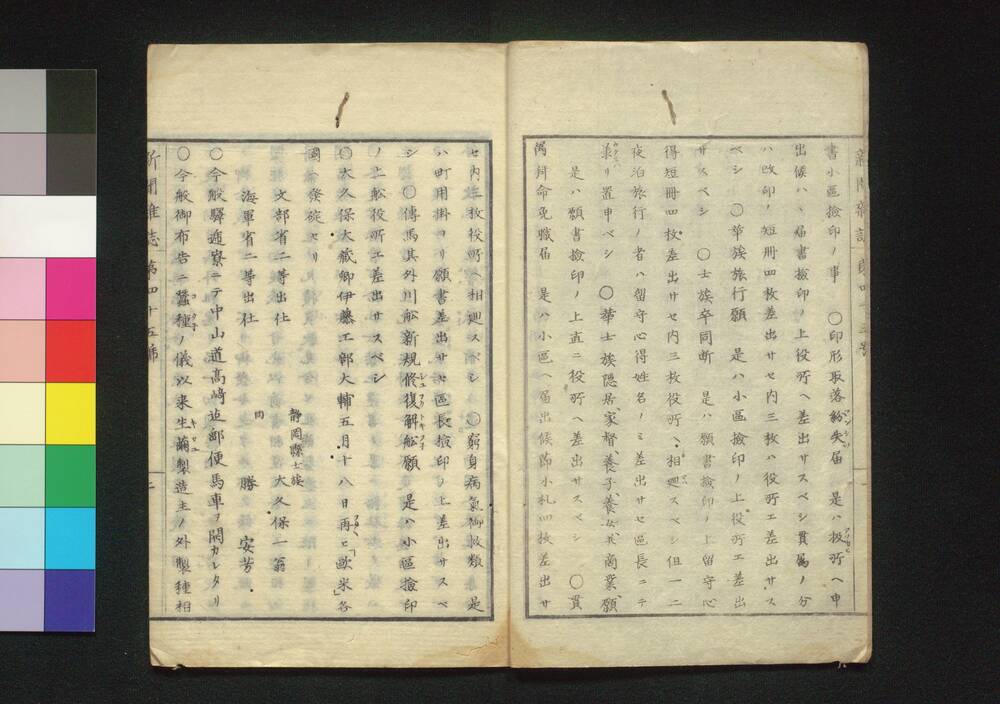 書小區撿印ノ事　〇印形取落紛失届　是ハ扱所ヘ申
出候ハヽ届書撿印ノ上役所ヘ差出サスベシ貫属ノ分
ハ改印ノ短冊四枚差出サセ内三枚ハ役所エ差出サス
ベシ　〇華族旅行願　是ハ小區撿印ノ上役所エ差出
サスベシ　〇士族卒同断　是ハ願書撿印ノ上留守心
得短冊四枚差出サセ内三枚役所ヘ相廻スベシ但一二
夜泊旅行ノ者ハ留守心得姓名ノミ差出サセ區長ニテ
承リ置申ベシ　〇華士族隠居家督養子養女共商業願
是ハ願書撿印ノ上直ニ役所ヘ差出サスベシ　〇貫
属拜命免職届　是ハ小區ヘ届出候節小札四枚差出サ
セ内三枚役所ヘ相廻スベシ　〇窮身病氣御救類　是
ハ町用掛ヨリ願書差出サセ區長撿印ノ上差出サスベ
シ　〇傳馬其外川舩新規修復解舩願　是ハ小區撿印
ノ上舩役所エ差出サスベシ
〇大久保大藏卿伊藤工部大輔五月十八日再ヒ歐米各
國ヘ發碇セリ
静岡縣士族
文部省二等出仕　大久保一翁
海軍省二等出仕　同　勝　安芳
〇今般驛逓寮ニテ中山道髙﨑迠郵便馬車ヲ開カレタリ
〇今般御布告ニ蚕種ノ儀以来生繭製造主ノ外製種相
新聞雑誌　第四十五號　二